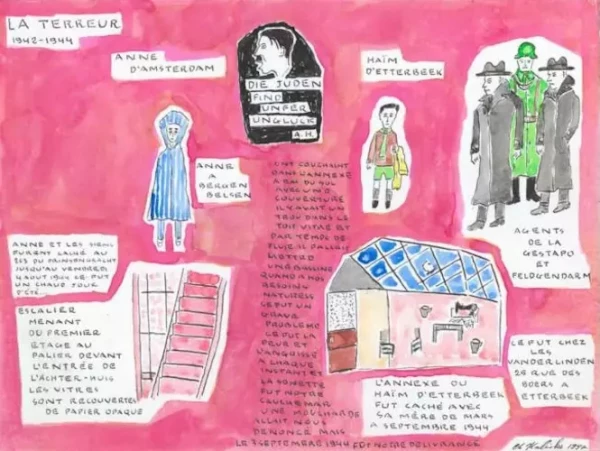 LA TERREUR
1942-1944
ANNE
D'AMSTERDAM
DIE JUDEN
FIND
UNFER
UNGLUCK
A.H.
HAÏM
D'ETTERBEEK
ANNE
A
BERGEN
BELSEN
AGENTS
DE LA
GESTAPO
ET
FELDGENDARM
ANNE ET LES SIENS
FURENT CACHÉ AU
263 DU PRINSENGRACHT
JUSQU'AU VENDREDI
4 AOUT 1944 CE FUT
UN CHAUD JOUR
D'ÉTÉ
ESCALIER
MENANT
DU PREMIER
ETAGE AU
PALIER DEVANT
L'ENTRÉE DE
L'ACHTER-HUIS
LES VITRES
SONT RECOUVERTES
DE PAPIER OPAQUE
ONT COUCHAIENT
DANS L'ANNEXE
A RAI DU SOL
AVEC UNE
COUVERTURE
IL Y AVAIT UN
TROU DANS LE
TOIT VITRÉ ET
PAR TEMPS DE
PLUIE IL FALLAIT
METTRE
UNE BASSINE
QUAND A NOS
BESOINS
NATURELS
CE FUT UN
GRAVE
PROBLEME
CE FUT LA
PEUR ET
L'ANGOISSE
A CHAQUE
INSTANT ET
LA SONETTE
FUT NOTRE
CAUCHEMAR
UNE MOUCHARDE
ALLAIT NOUS
DENONCÉ MAIS
LE 3 SEPTEMBRE 1944 FUT NOTRE DELIVRANCE
L'ANNEXE OU
HAÏM D'ETTERBEEK
FUT CACHÉ AVEC
SA MÈRE DE MARS
A SEPTEMBRE 1944
CE FUT CHEZ
LES
VANDERLINDEN
24 RUE DES
BOERS A
ETTERBEEK